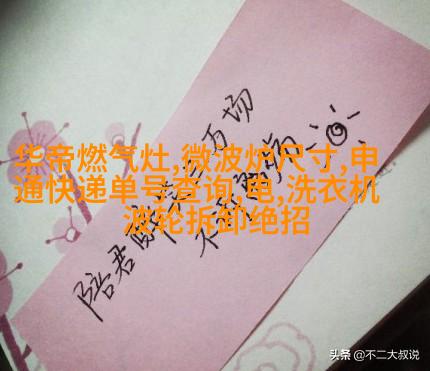 华帝燃气灶,微波炉尺寸,申
通快递单号查询,电,洗衣机
波轮拆卸绝招
陪君醉笑三万场
不诉离殇
头条 @不二大叔说